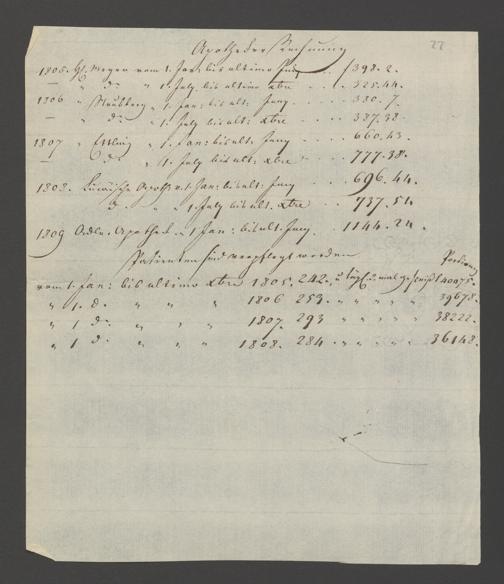 22
Apotheker Rechnung
1805. H. Mayer vom 1. Jan: bis ultimo Juny . . f 398. 2.
— " d° " 1. July bis ultimo xbre . . 325. 44.
1806 " Straßberg " 1. Jan: bis ult: Juny . . 330. 7.
— " d° " 1. July bis ult: xbre . . . 387. 38.
1807 " " 1. Jan: bis ult: Juny . . . 660. 43.
— d° " 1. July bis ult: xbre . . . . 777. 38.
1808. Apoth: v. 1. Jan: bis ult: Juny . . . 696. 44.
d° " " 1. July bis ult. xbre . . . 737. 54
1809 Apothek " 1 Jan: bis ult. Juny . . 1144. 24.
Patienten sind verpflegt worden
Portionen
vom 1. Jan: bis ultimo xbre 1805. 242. 40075.
" 1. d° " " " 1806 253. " " " " 39678.
" 1 d° " " " 1807. 293 " " " " 38222.
" 1 d° " " " 1808. 284 . " " . " 36148.